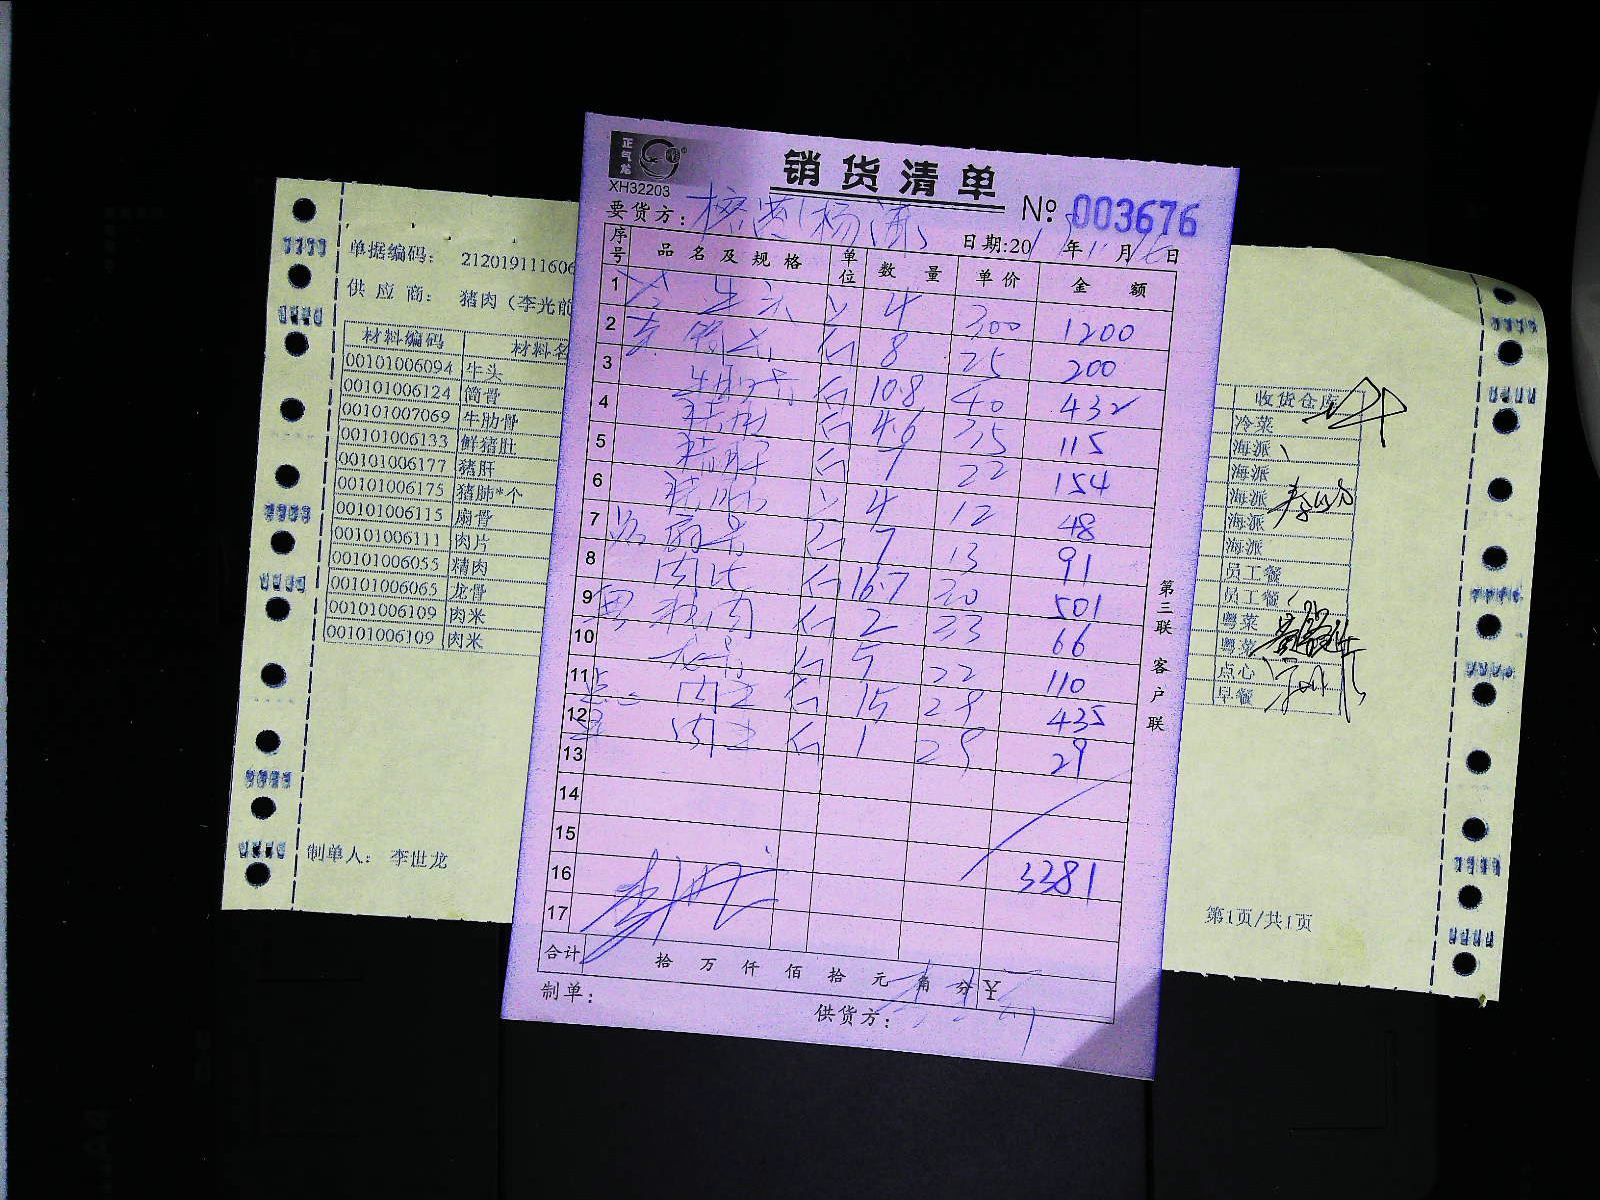 正气龙
XH32203
销货清单
№: 003676
要货方:
日期:20 年 11 月 日
序号 品名及规格 单位 数量 单价 金额
1 牛头 4 300 1200
2 筒骨 斤 8 25 200
3 牛肋骨 斤 10.8 40 432
4 猪肚 斤 4.6 25 115
5 猪肝 斤 7 22 154
6 猪肺 4 12 48
7 扇骨 斤 7 13 91
8 肉片 斤 16.7 30 501
9 粤 精肉 斤 2 33 66
10 龙骨 斤 5 22 110
11 点心 肉米 斤 15 29 435
12 早 肉米 斤 1 29 29
13
14
15
16 3381
17
合计 拾 万 仟 佰 拾 元 角 分 ¥
制单:
供货方:
第三联 客户联
单据编码: 21201911160
供应商: 猪肉(李光前
材料编码 材料名
00101006094 牛头
00101006124 筒骨
00101007069 牛肋骨
00101006133 鲜猪肚
00101006177 猪肝
00101006175 猪肺*个
00101006115 扇骨
00101006111 肉片
00101006055 精肉
00101006065 龙骨
00101006109 肉米
00101006109 肉米
制单人: 李世龙
收货仓库
冷菜
海派
海派
海派
海派
海派
员工餐
员工餐
粤菜
粤菜
点心
早餐
第1页/共1页